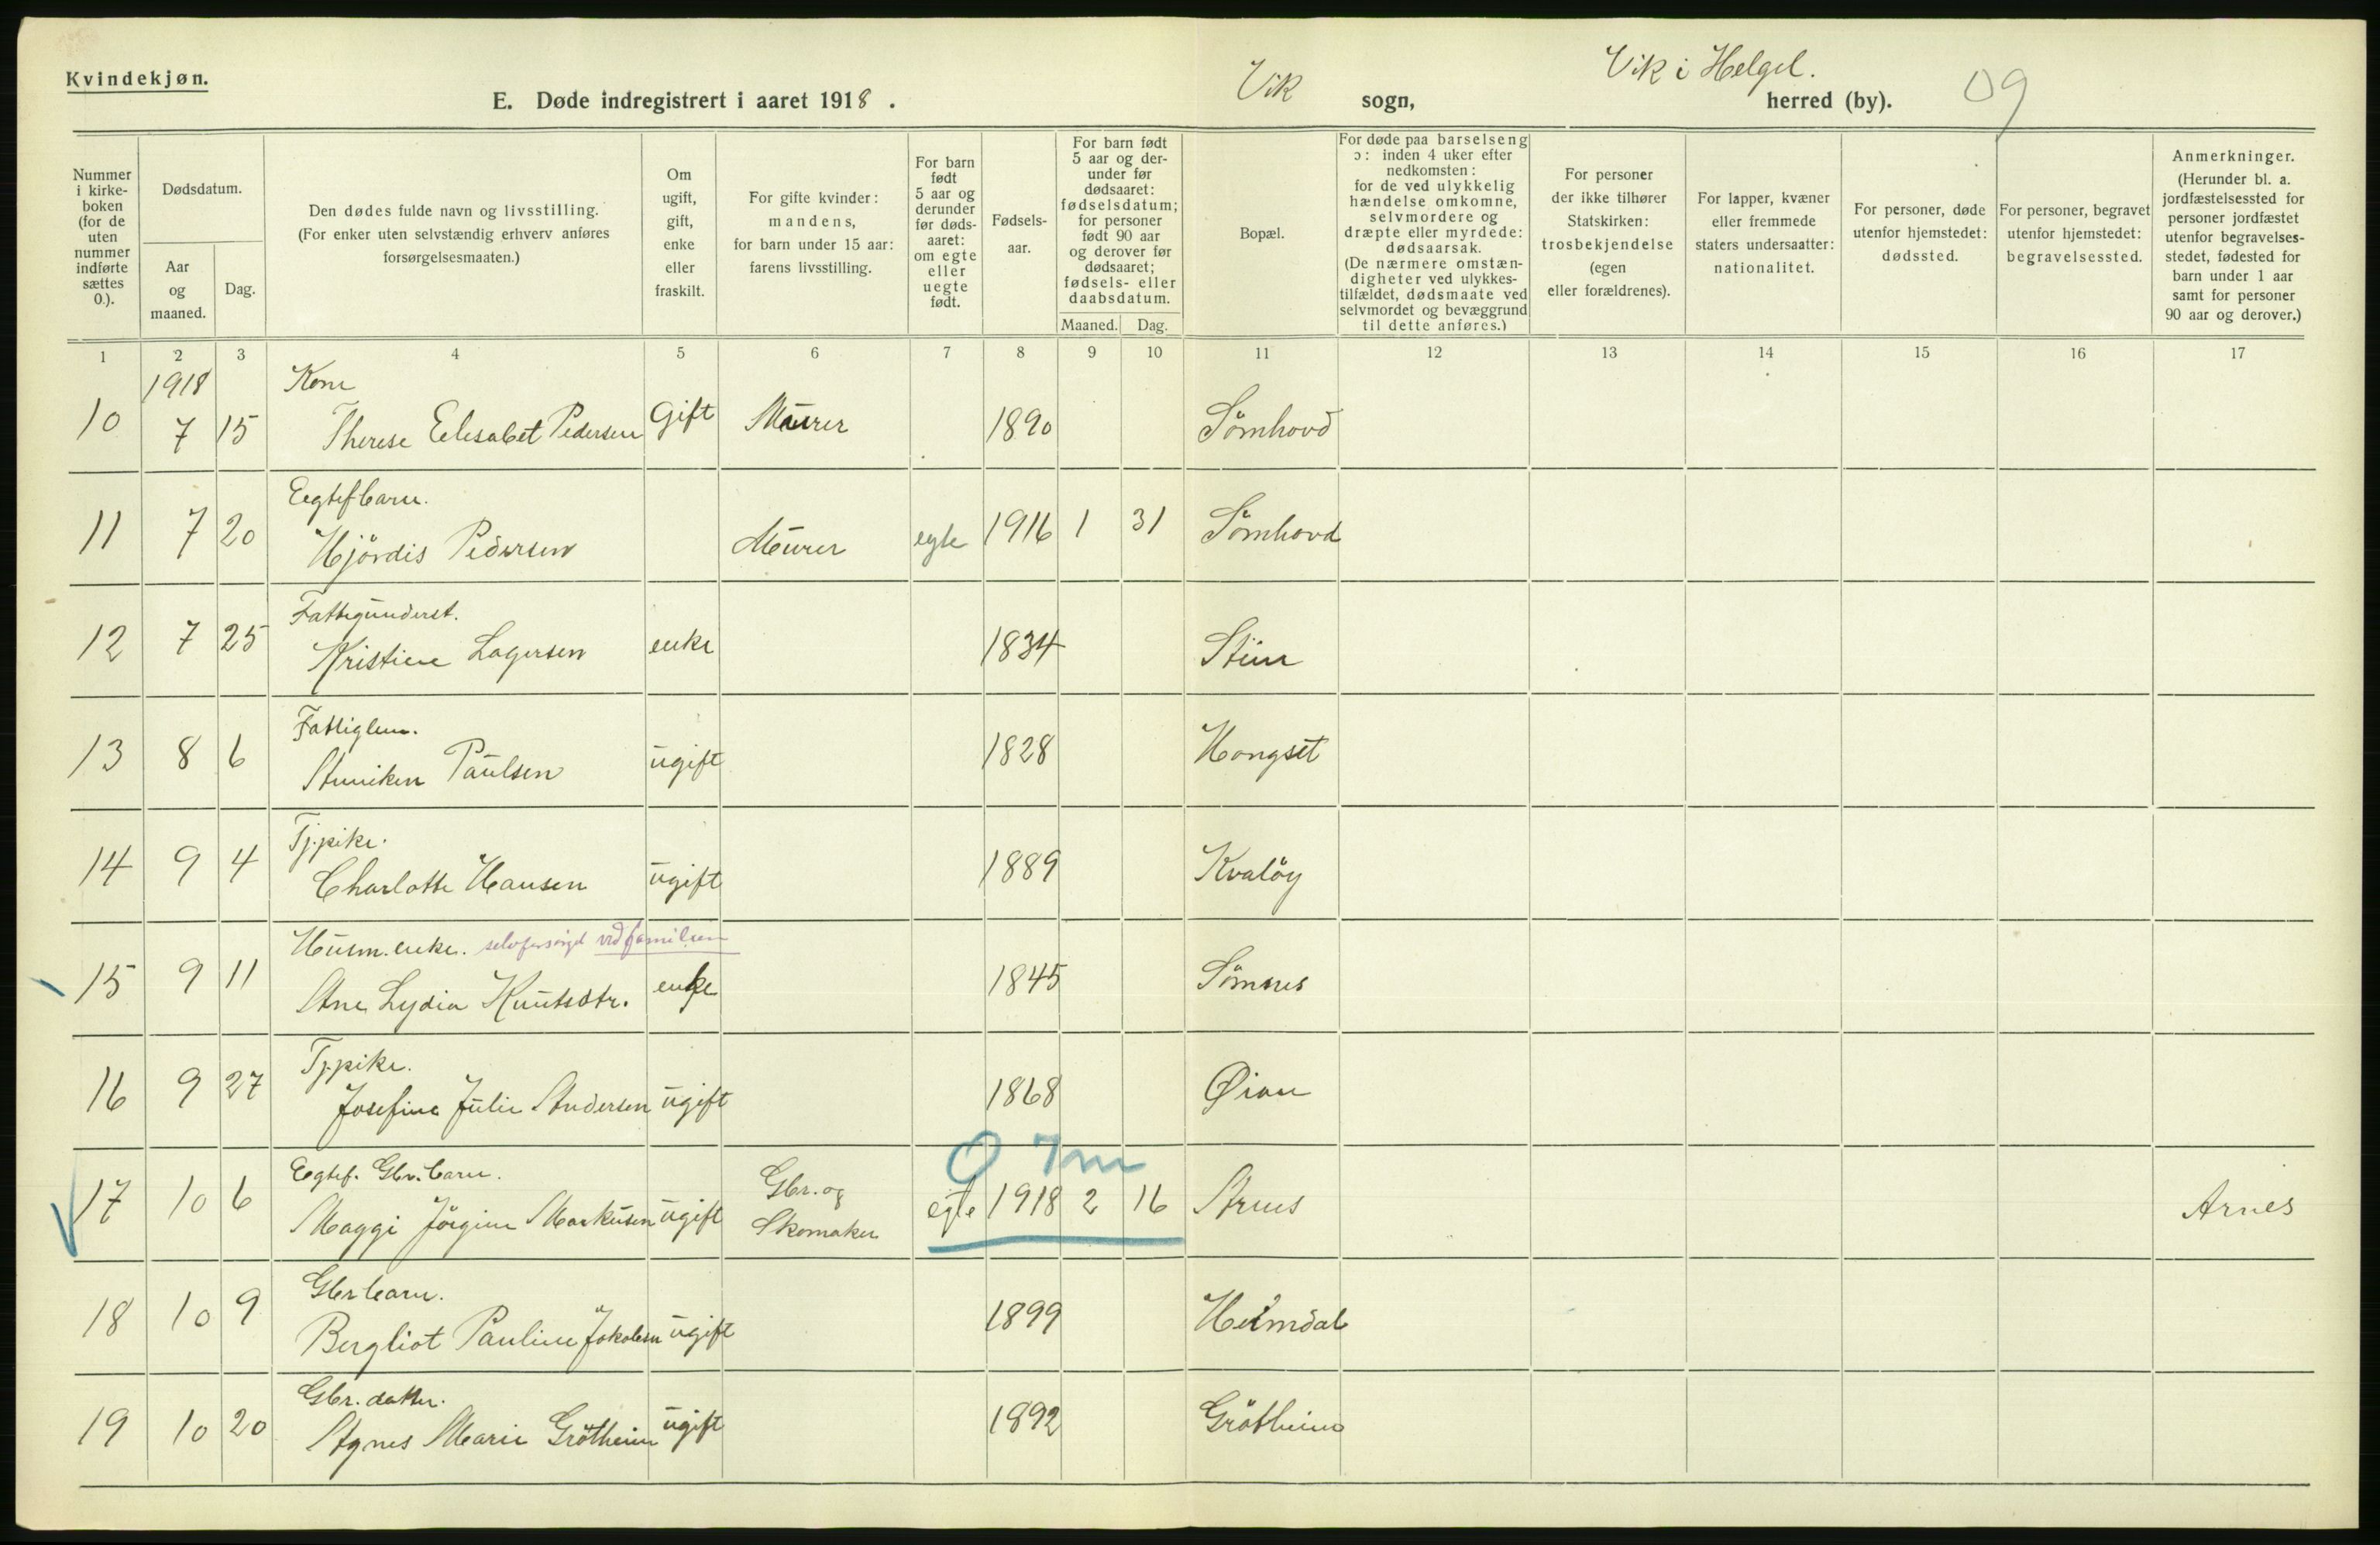 Kvindekjøn.
E. Døde indregistrert i aaret 1918.
Vik sogn,
Vik i Helgel. herred (by). 09
Nummer i kirkeboken (for de uten nummer indførte sættes 0.).
Dødsdatum.
Aar og maaned.
Dag.
Den dødes fulde navn og livsstilling. (For enker uten selvstændig erhverv anføres forsørgelsesmaaten.)
Om ugift, gift, enke eller fraskilt.
For gifte kvinder: mandens, for barn under 15 aar: farens livsstilling.
For barn født 5 aar og derunder før dødsaaret: om egte eller uegte født.
Fødselsaar.
For barn født 5 aar og derunder før dødsaaret: fødselsdatum; for personer født 90 aar og derover før dødsaaret; fødsels- eller daabsdatum.
Maaned. Dag.
Bopæl.
For døde paa barselseng ɔ: inden 4 uker efter nedkomsten: for de ved ulykkelig hændelse omkomne, selvmordere og dræpte eller myrdede: dødsaarsak. (De nærmere omstændigheter ved ulykkestilfældet, dødsmaate ved selvmordet og bevæggrund til dette anføres.)
For personer der ikke tilhører Statskirken: trosbekjendelse (egen eller forældrenes).
For lapper, kvæner eller fremmede staters undersaatter: nationalitet.
For personer, døde utenfor hjemstedet: dødssted.
For personer, begravet utenfor hjemstedet: begravelsessted.
Anmerkninger. (Herunder bl. a. jordfæstelsessted for personer jordfæstet utenfor begravelsesstedet, fødested for barn under 1 aar samt for personer 90 aar og derover.)
1 2 3 4 5 6 7 8 9 10 11 12 13 14 15 16 17
1918 Kone
10 7 15 Therese Elesabet Pedersen Gift Murer 1890 Sömhovd
Egtefbarn.
11 7 20 Hjördis Pedersen Murer egte 1916 1 31 Sömhovd
Fattigunderst.
12 7 25 Kristine Lagersen enke 1834
Fattiglem.
13 8 6 Anniken Paulsen ugift 1828 Hongset
Tj.pike.
14 9 4 Charlotte Hansen ugift 1889 Kvalöy
Husm. enke. selvforsörget ved familien
15 9 11 Ane Lydia Knutsdtr. enke 1845 Sömnes
Tj.pike.
16 9 27 Josefine Julie Andersen ugift 1868 Øian
0 7m
Egtef. Gbr. barn.
17 10 6 Maggi Jörgine Markusen ugift Gbr. og Skomaker egte 1918 2 16 Arnes Arnes
Gbr barn.
18 10 9 Bergliot Pauline Jakobsen ugift 1899 Heimdal
Gbr. datter.
19 10 20 Agnes Marie Grötheim ugift 1892 Grötheim